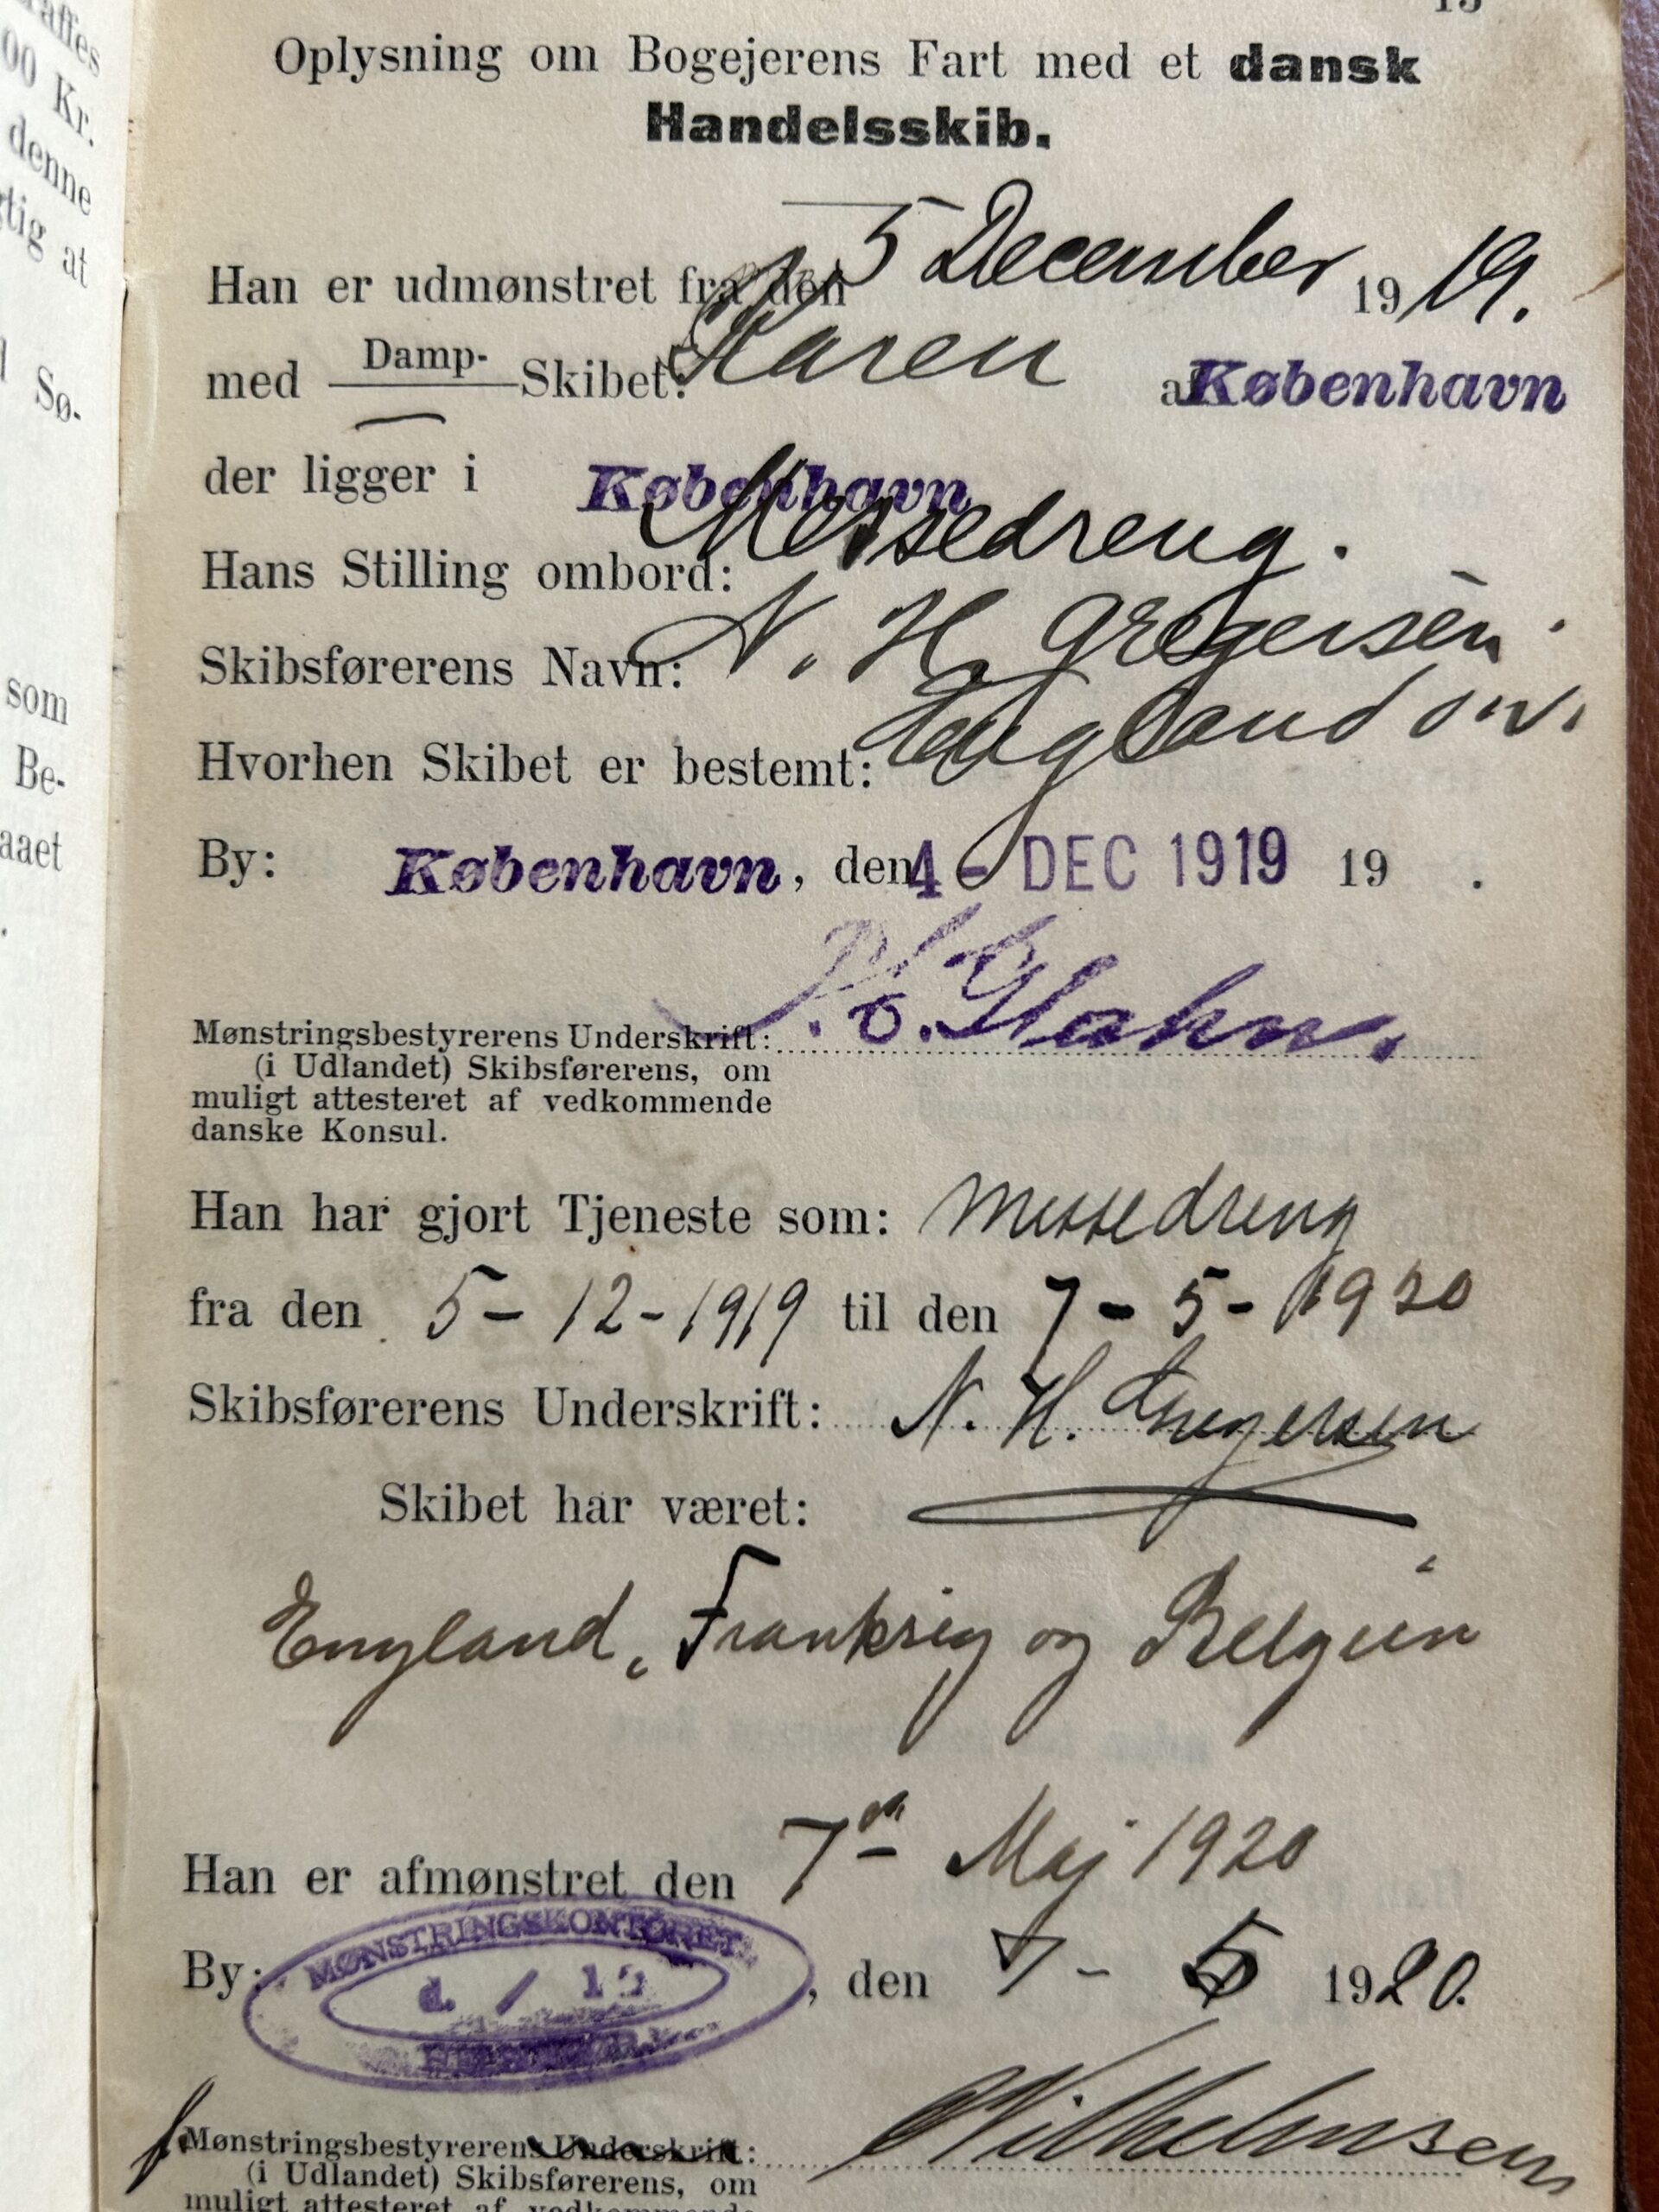 raffes
00 Kr.
denne
gtig at
Sø-
som
Be-
aaet
.
13
Oplysning om Bogejerens Fart med et dansk
Handelsskib.
Han er udmønstret fra den 5 December 1919.
med Damp- Skibet: Karen af København
der ligger i København
Hans Stilling ombord: Messedreng.
Skibsførerens Navn: N. H. Gregersen
Hvorhen Skibet er bestemt: England o.v.
By: København, den 4- DEC 1919 19 .
Mønstringsbestyrerens Underskrift: Glahn.
(i Udlandet) Skibsførerens, om
muligt attesteret af vedkommende
danske Konsul.
Han har gjort Tjeneste som: Messedreng
fra den 5-12-1919 til den 7-5-1920
Skibsførerens Underskrift: N. H. Gregersen
Skibet har været:
England, Frankrig og Belgien
Han er afmønstret den 7de Maj 1920
By: MØNSTRINGSKONTORET, den 7-5 1920.
Mønstringsbestyrerens Underskrift: Wilhelmsen
(i Udlandet) Skibsførerens, om
muligt attesteret af vedkommende